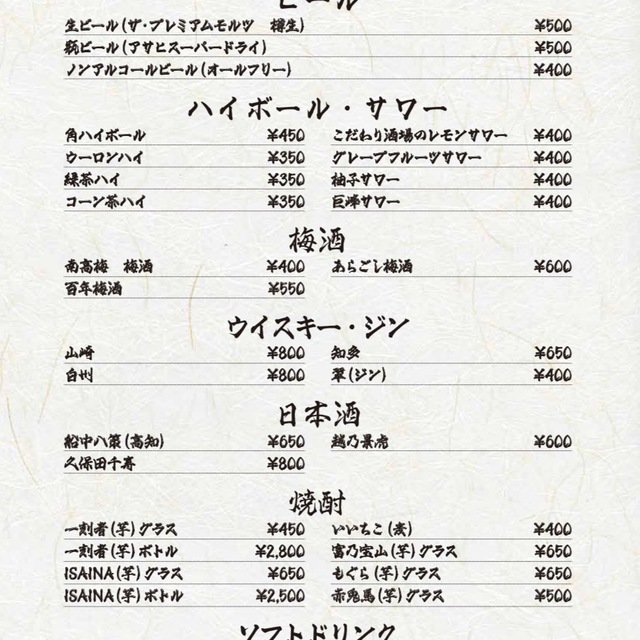 ビール
生ビール(ザ・プレミアムモルツ 樽生) ¥500
瓶ビール(アサヒスーパードライ) ¥500
ノンアルコールビール(オールフリー) ¥400
ハイボール・サワー
角ハイボール ¥450 こだわり酒場のレモンサワー ¥400
ウーロンハイ ¥350 グレープフルーツサワー ¥400
緑茶ハイ ¥350 柚子サワー ¥400
コーン茶ハイ ¥350 巨峰サワー ¥400
梅酒
南高梅 梅酒 ¥400 あらごし梅酒 ¥600
百年梅酒 ¥550
ウイスキー・ジン
山崎 ¥800 知多 ¥650
白州 ¥800 翠(ジン) ¥400
日本酒
船中八策(高知) ¥650 越乃景虎 ¥600
久保田千寿 ¥800
焼酎
一刻者(芋)グラス ¥450 いいちこ(麦) ¥400
一刻者(芋)ボトル ¥2,800 富乃宝山(芋)グラス ¥650
ISAINA(芋)グラス ¥650 もぐら(芋)グラス ¥650
ISAINA(芋)ボトル ¥2,500 赤兎馬(芋)グラス ¥500
ソフトドリンク